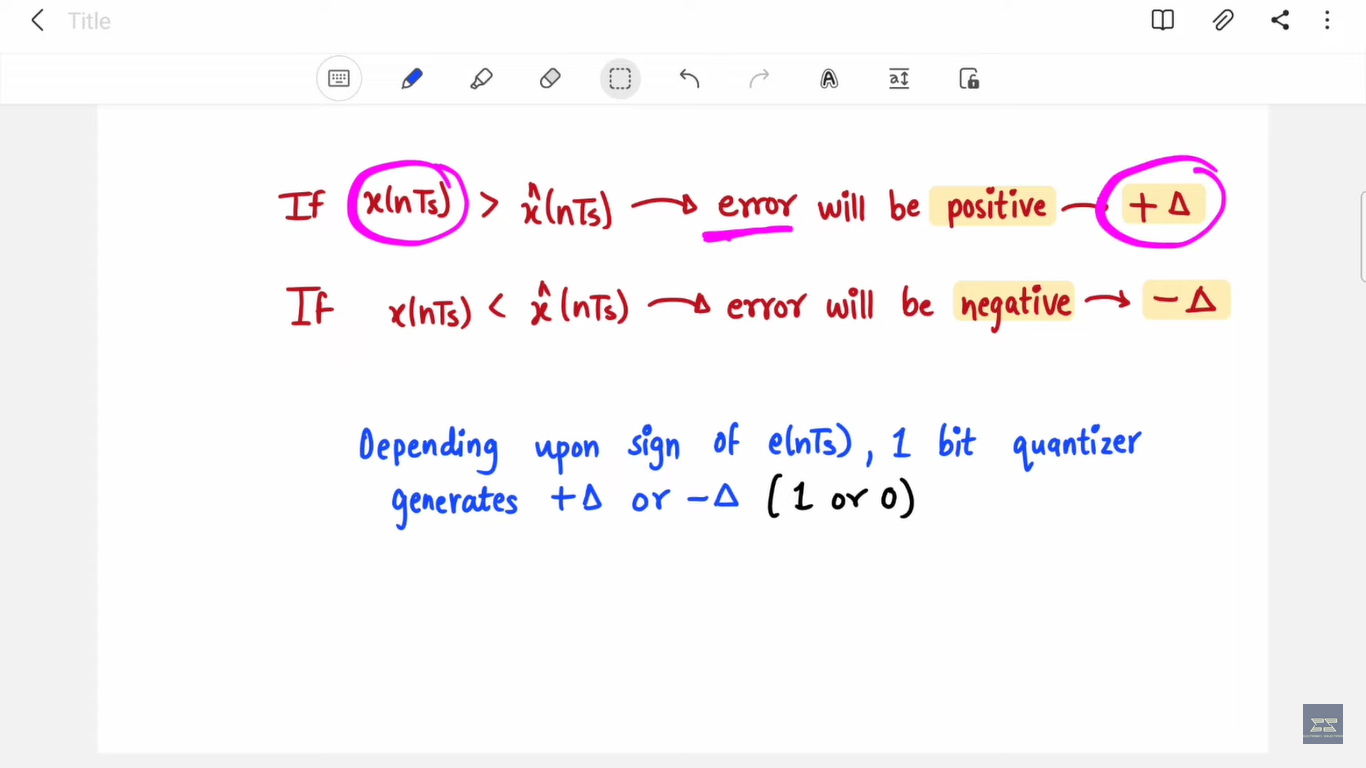 Title
If x(nTs) > x̂(nTs) → error will be positive → +Δ
If x(nTs) < x̂(nTs) → error will be negative → -Δ
Depending upon sign of e(nTs), 1 bit quantizer
generates +Δ or -Δ (1 or 0)